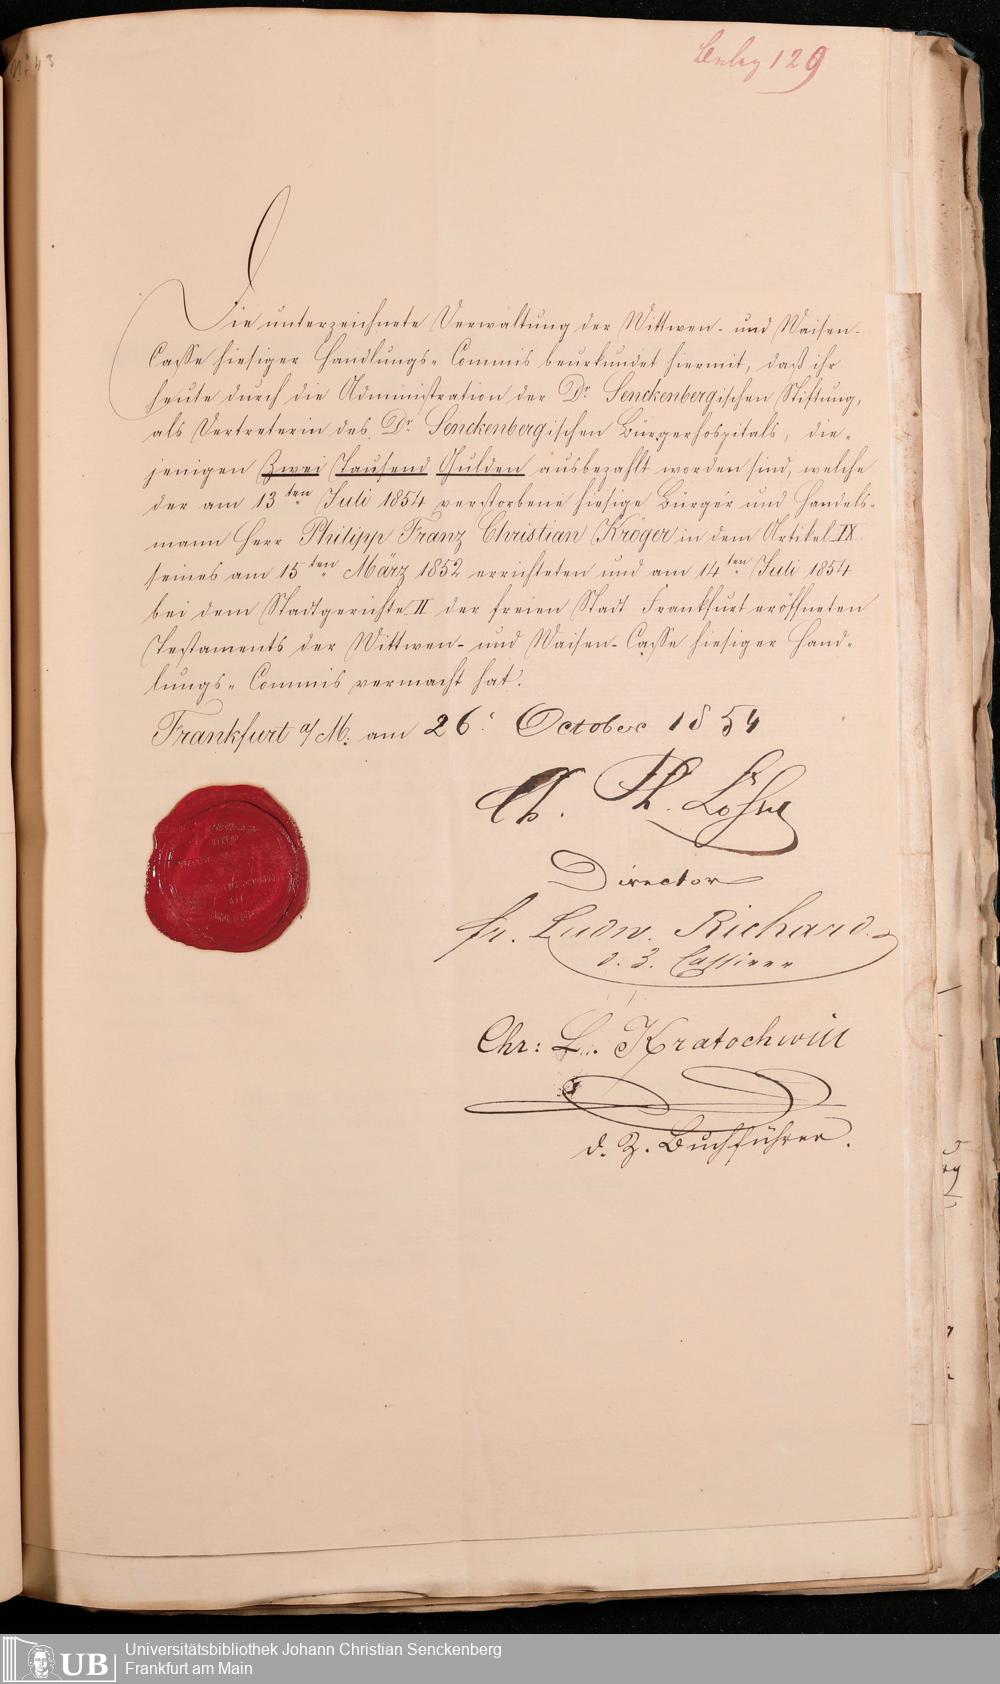 No 43
Beleg 129
Die unterzeichnete Verwaltung der Wittwen- und Waisen-
Casse hiesiger Handlungs-Commis beurkundet hiermit, daß ihr
heute durch die Administration der Dr. Senckenbergischen Stiftung,
als Vertreterin des Dr. Senckenbergischen Bürgerhospitals, die-
jenigen Zwei Tausend Gulden ausbezahlt worden sind, welche
der am 13ten Juli 1854 verstorbene hiesige Bürger und Handels-
mann Herr Philipp Franz Christian Kröger in dem Artikel IX
seines am 15ten März 1852 errichteten und am 14ten Juli 1854
bei dem Stadtgerichte II der freien Stadt Frankfurt eröffneten
Testaments der Wittwen- und Waisen-Casse hiesiger Hand-
lungs-Commis vermacht hat.
Frankfurt a/M. am 26. October 1854
Ph.
Director
Fr. Ludw. Richard
d. Z. Cassirer
Chr: L. Kratochwill
d. Z. Buchführer.
UB
Universitätsbibliothek Johann Christian Senckenberg
Frankfurt am Main